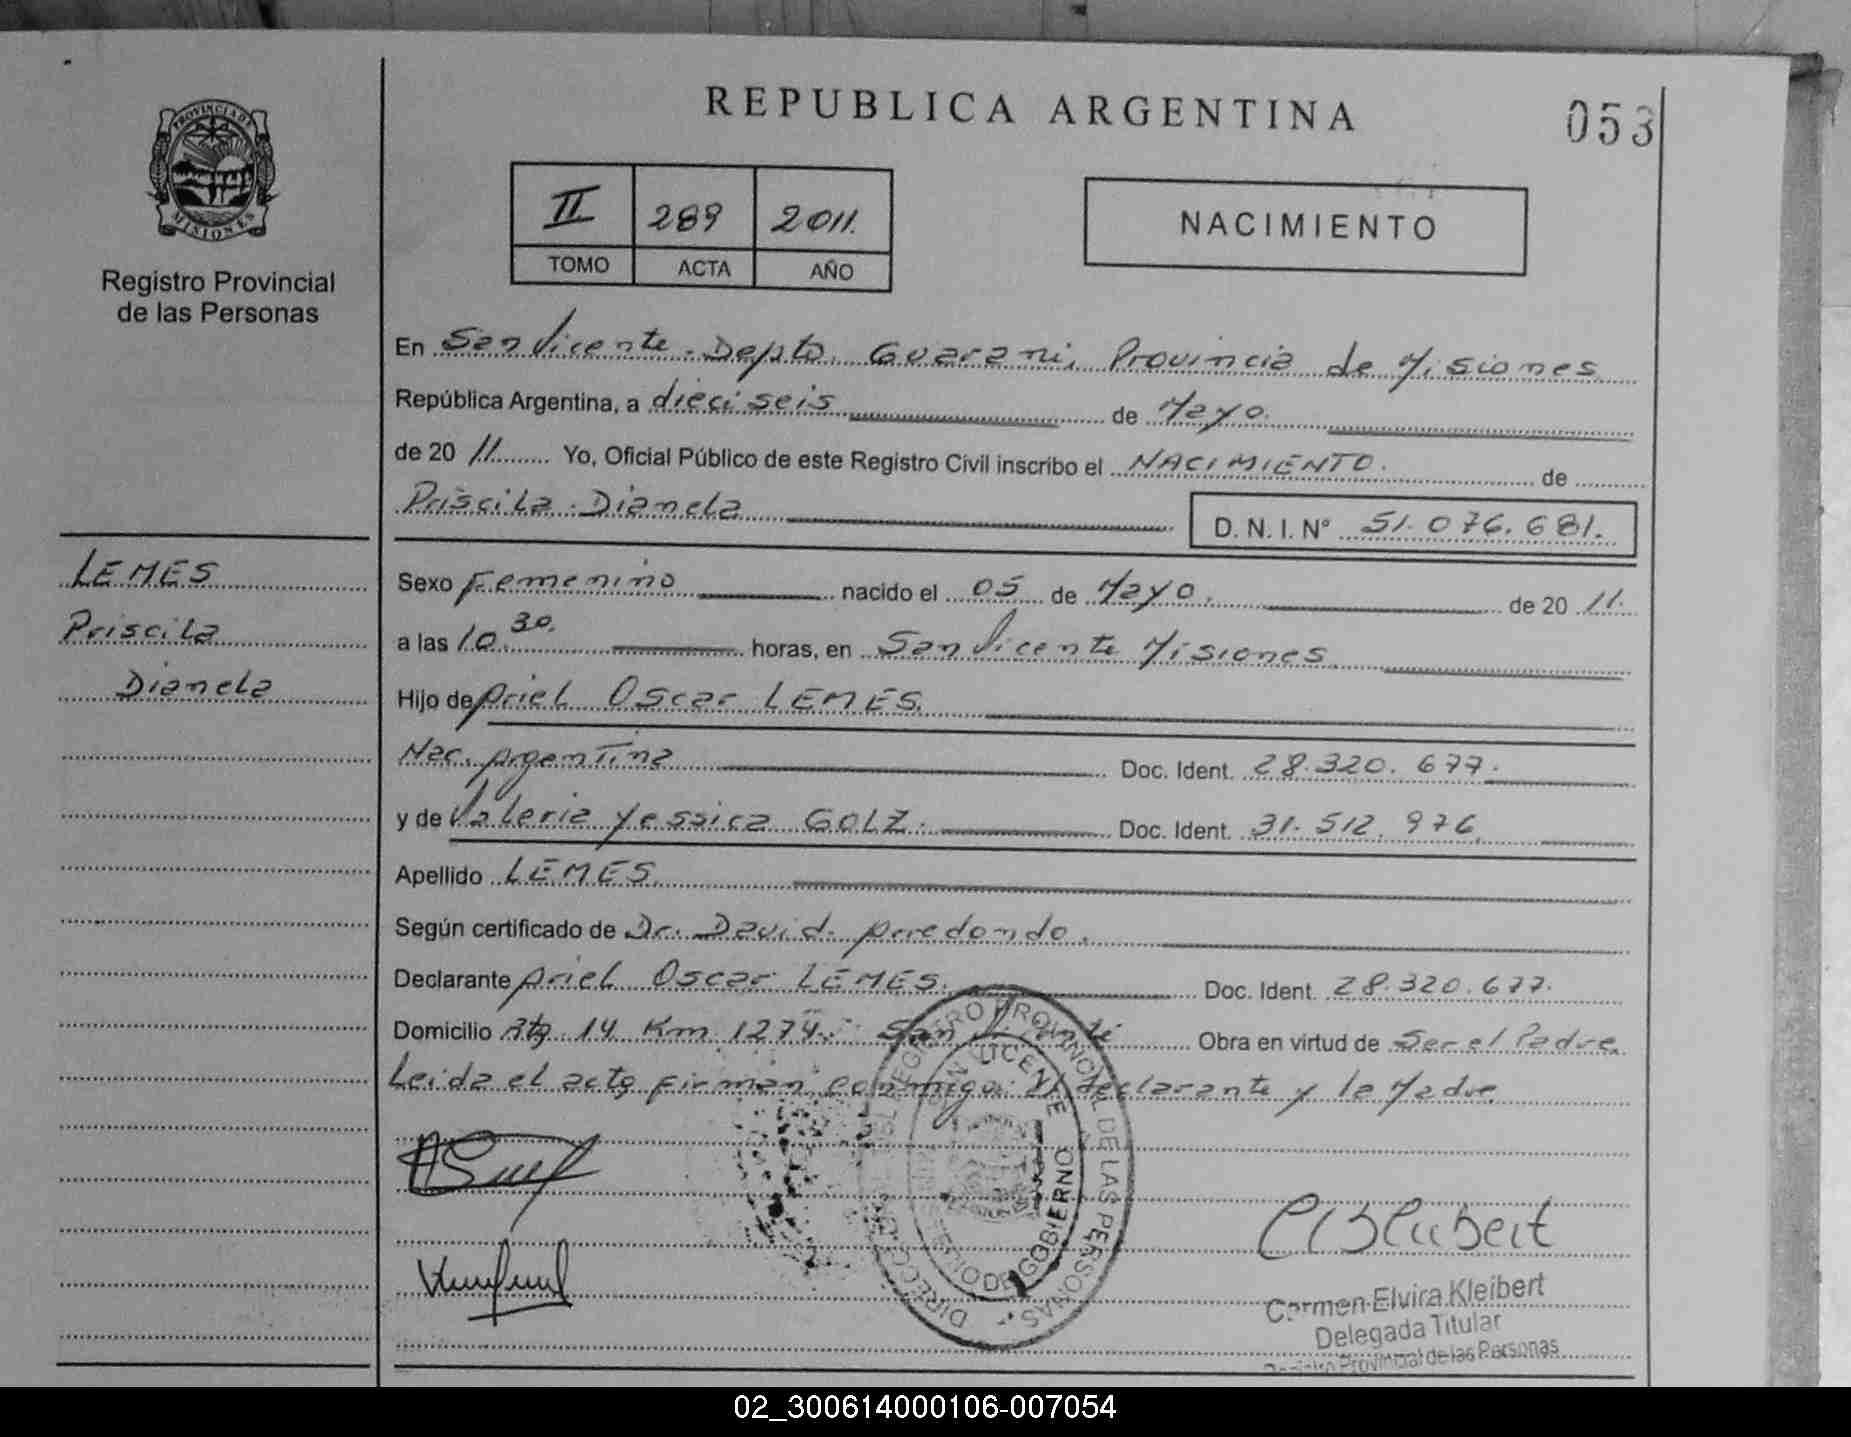 REPUBLICA ARGENTINA
053
PROVINCIA DE
MISIONES
Registro Provincial
de las Personas
II 289 2011.
TOMO ACTA AÑO
NACIMIENTO
En San Vicente. Depto. Guarani, Provincia de Misiones
República Argentina, a dieciseis de Mayo.
de 20 11 Yo, Oficial Público de este Registro Civil inscribo el NACIMIENTO. de
Priscila Dianela
D. N. I. Nº 51.076.681.
LEMES
Priscila
Dianela
Sexo Femenino nacido el 05 de Mayo. de 20 11.
a las 10 30. horas, en San Vicente Misiones
Hijo de Ariel Oscar LEMES.
Nac. Argentina Doc. Ident. 28.320.677.
y de Valeria Yessica GOLZ. Doc. Ident. 31.512.976
Apellido LEMES
Según certificado de Dr. David Arredondo.
Declarante Ariel Oscar LEMES. Doc. Ident. 28.320.677.
Domicilio Rta 14 Km 1274. San Obra en virtud de Ser el Padre.
Leida el acta firman conmigo: El declarante y la Madre
DIRECCION REGISTRO PROVINCIAL DE LAS PERSONAS
SAN VICENTE
DE GOBIERNO
Carmen Elvira Kleibert
Delegada Titular
Registro Provincial de las Personas
02_300614000106-007054